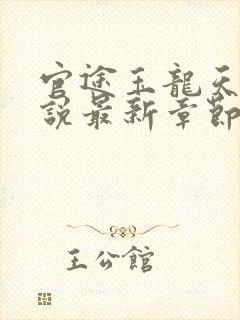 官途王龍天
說最新章節
王公館